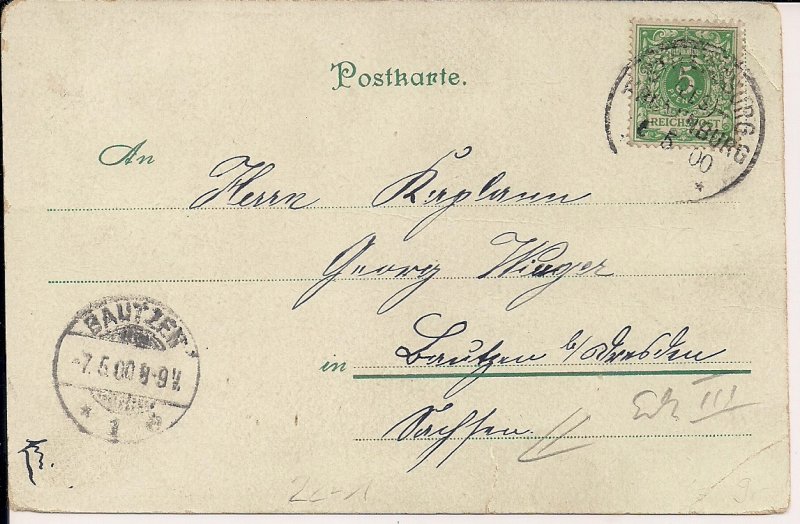 Postkarte.
5
REICHSPOST
5 00
An
Herrn Kaplann
Georg Winger
in Bautzen b/Dresden
Sachsen
BAUTZEN
7.5.00 8-9V.
1
III